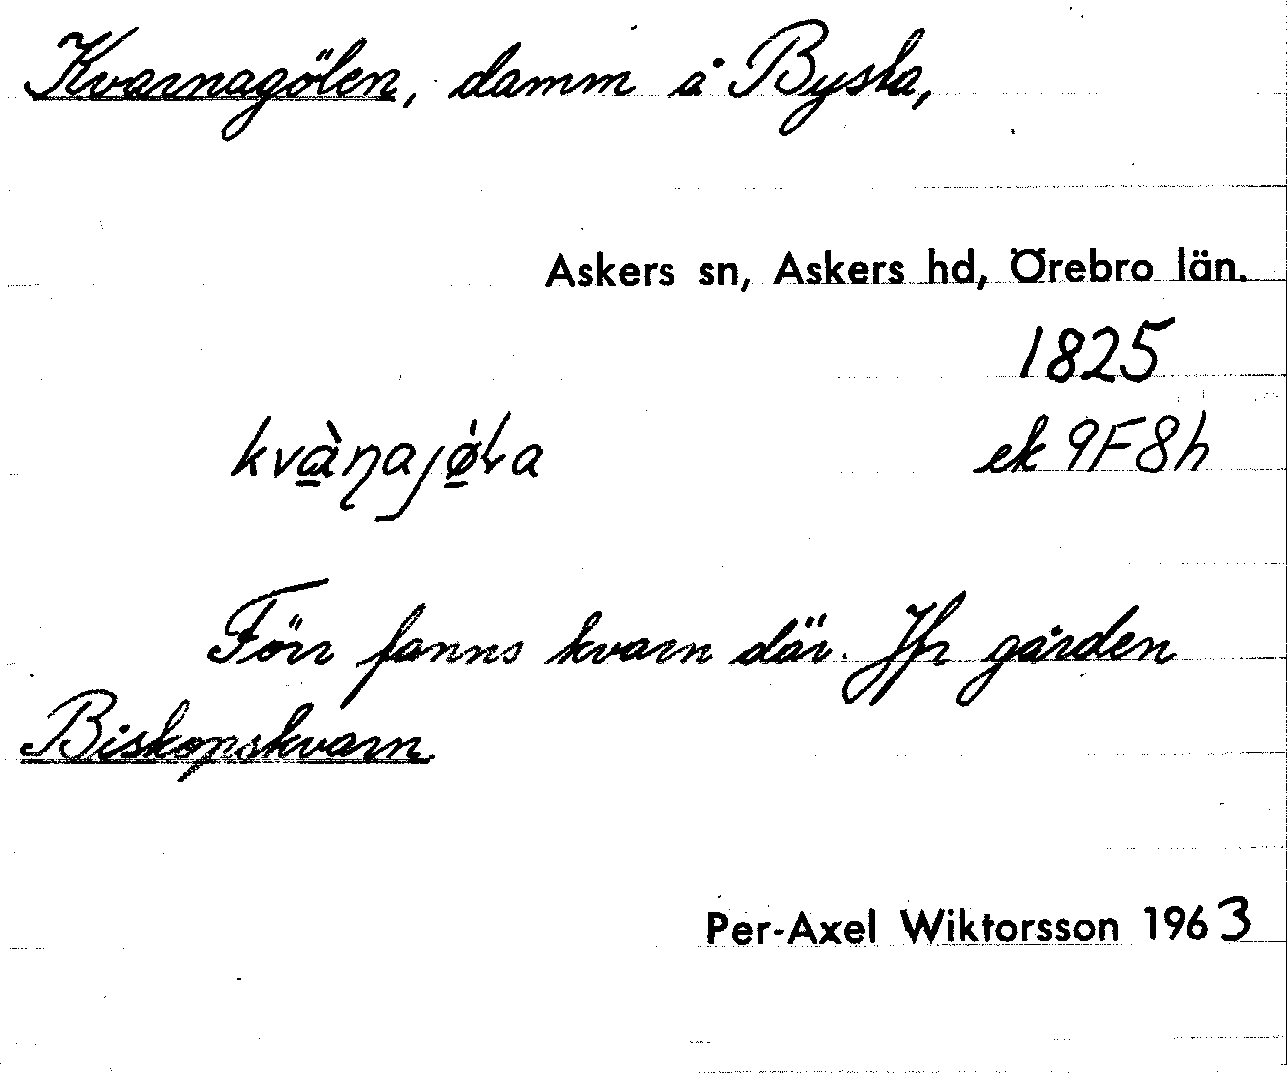 Kvarnagölen, damm å Bysta,
Askers sn, Askers hd, Örebro län.
1825
kvà̱ɳajø̱̀ɽa ek 9F8h
Förr fanns kvarn där. Jfr gården
Biskopskvarn.
Per-Axel Wiktorsson 1963